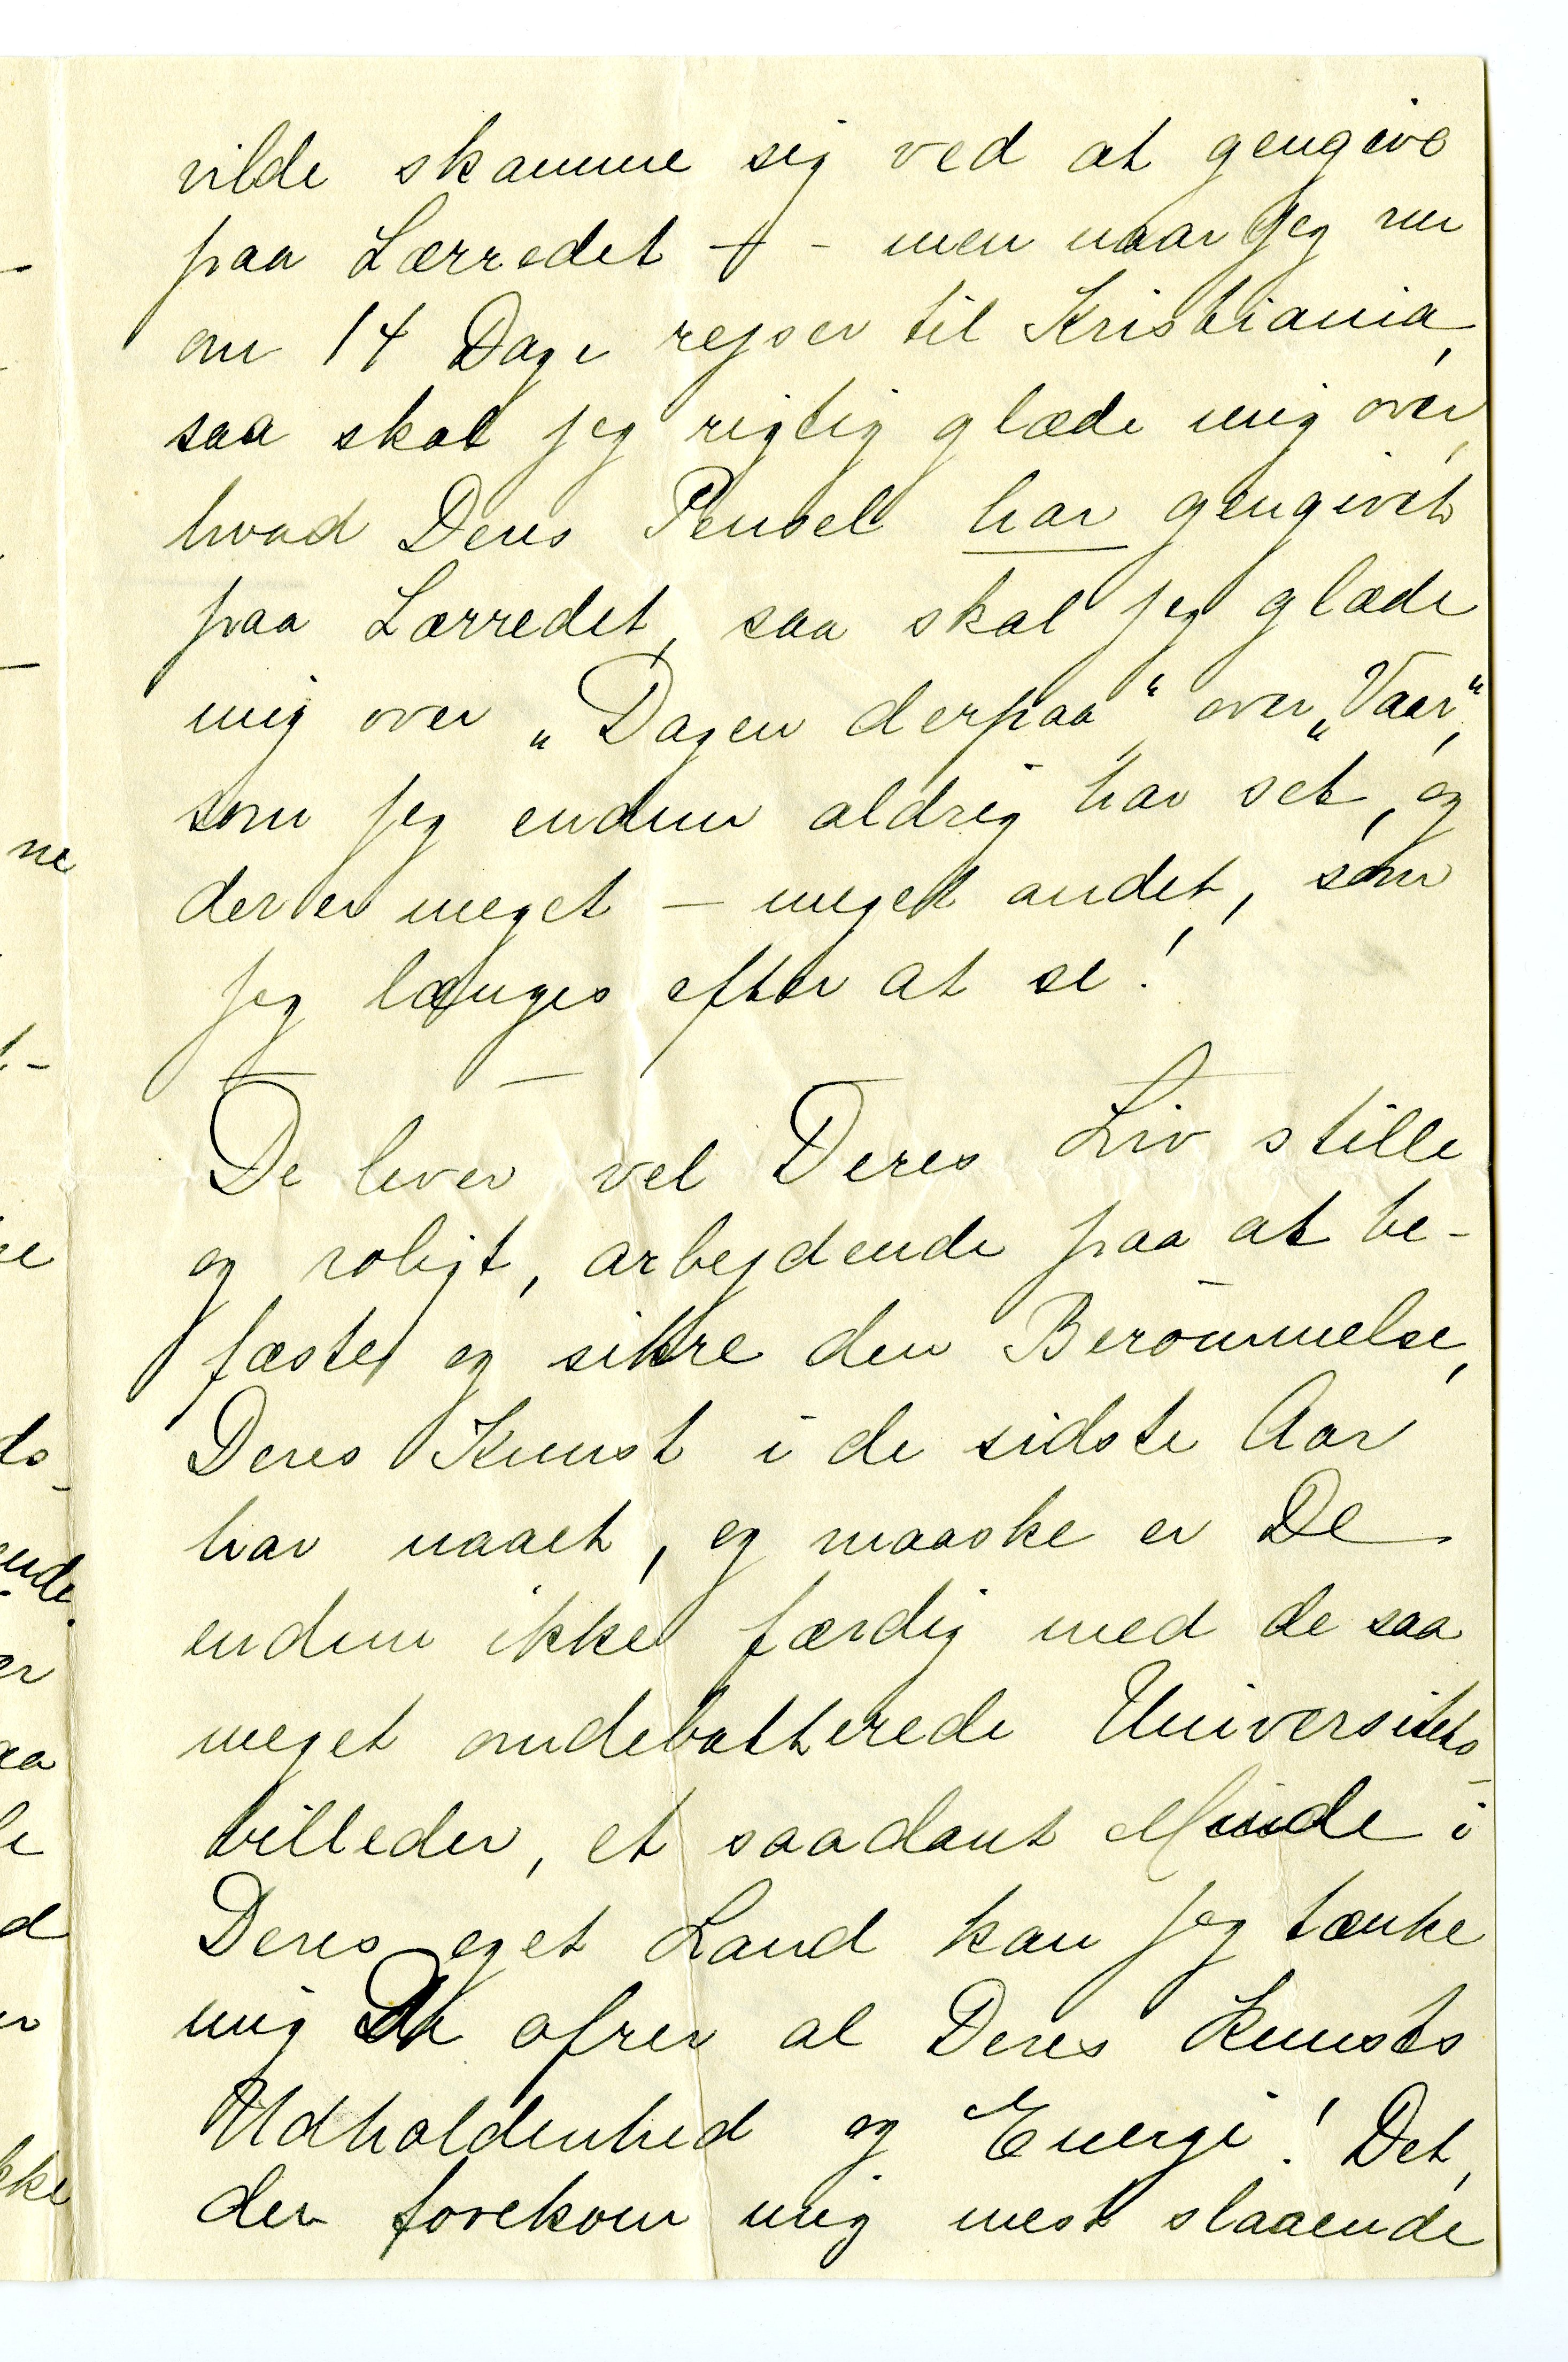 vilde skamme sig ved at gengive
paa Lærredet — - men naar jeg nu
om 14 Dage rejser til Kristiania,
saa skal jeg rigtig glæde mig over,
hvad Deres Pensel har gengivet
paa Lærredet, saa skal jeg glæde
mig over „Dagen derpaa“, over „Vaar“,
som jeg endnu aldrig har set, og
der er meget — meget andet, som
jeg længes efter at se!
De lever vel Deres Liv stille
og roligt, arbejdende paa at be-
fæste og sikre den Berömmelse,
Deres Kunst i de sidste Aar
har naaet, og maaske er De
endnu ikke færdig med de saa
meget omdebatterede Universitets-
billeder, et saadant Minde i
Deres eget Land kan jeg tænke
mig De ofrer al Deres Kunsts
Udholdenhed og Energi! Det,
der forekom mig mest slaaende